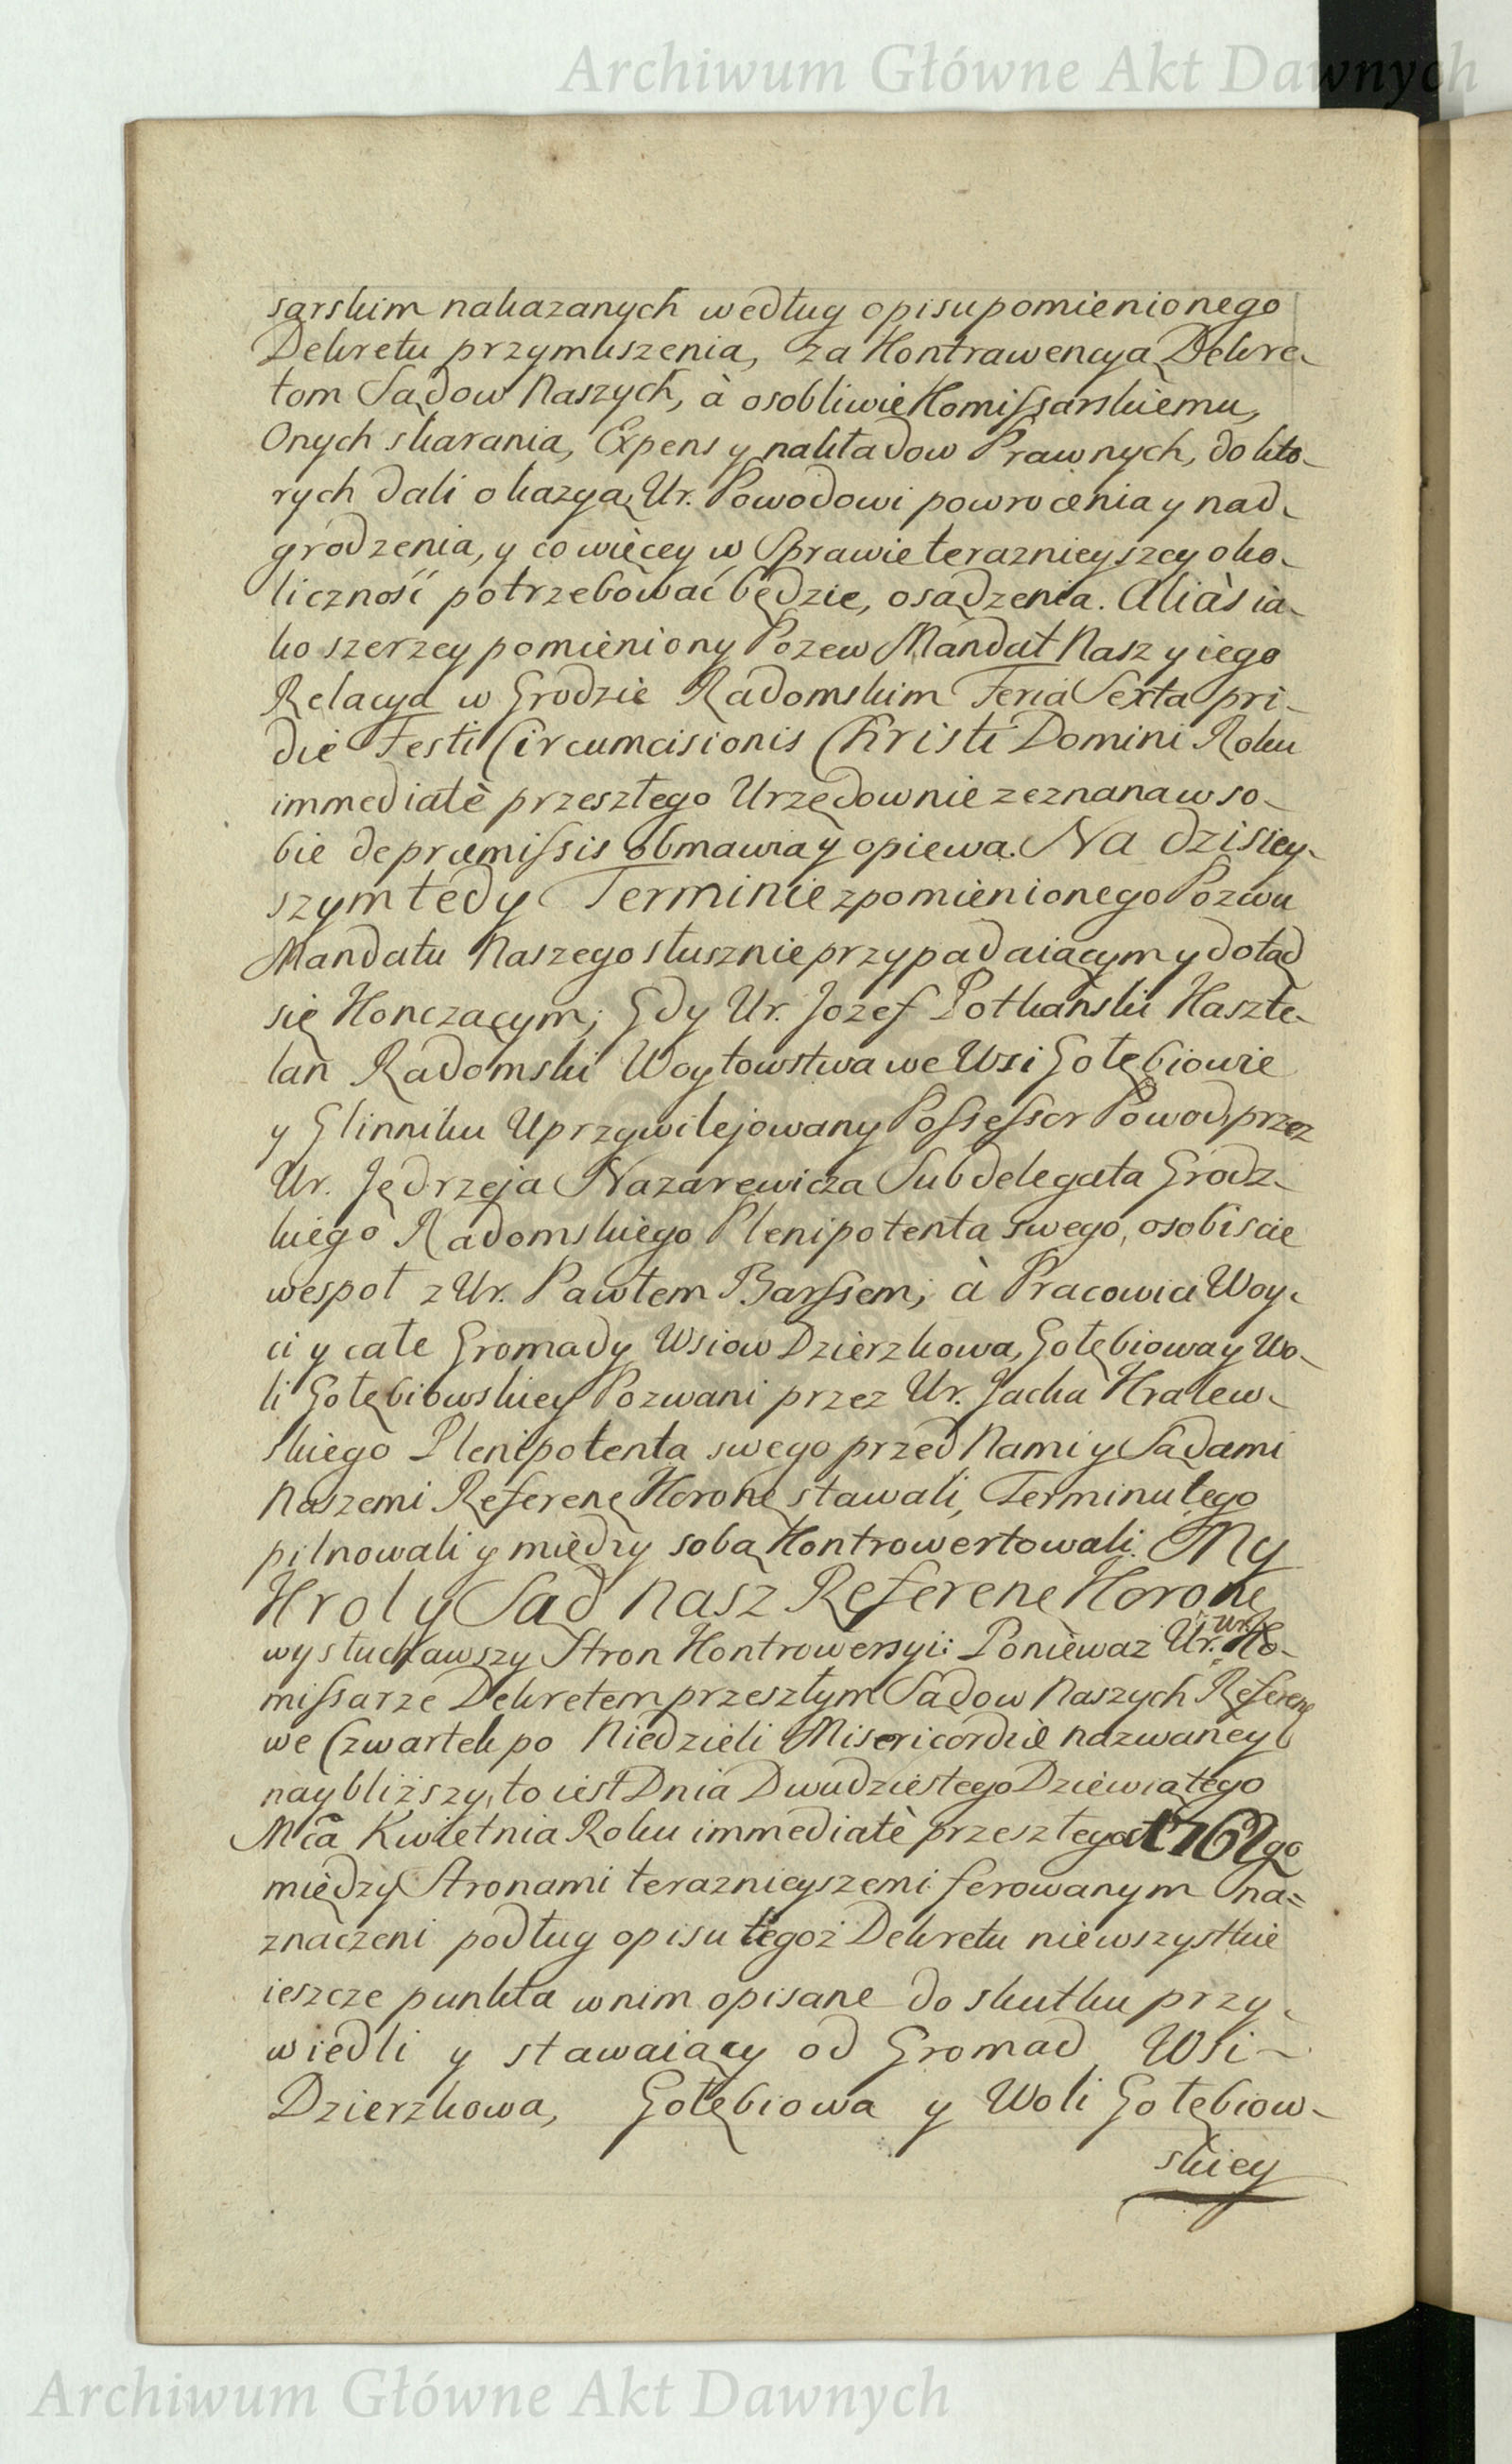 Archiwum Główne Akt Dawnych
sarskim nakazanych według opisu pomienionego
Dekretu przymuszenia, za Kontrawencyą Dekre-
tom Sądow Naszych, à osobliwie Komissarskiemu,
Onych skarania, Expens y nakładow Prawnych, do kto-
rych dali okazyą, Ur. Powodowi powrocenia y nad-
grodzenia, y co więcey w Sprawie teraznieyszey oko-
liczność potrzebować będzie, osądzenia. Aliàs ia-
ko szerzey pomieniony Pozew Mandat Nasz y iego
Relacya w Grodzie Radomskim Feria Sexta pri-
die Festi Circumcisionis Christi Domini Roku
immediatè przeszłego Urzędownie zeznana w so-
bie de præmissis obmawia y opiewa. Na dzisiey-
szym tedy Terminie z pomienionego Pozwu
Mandatu Naszego słusznie przypadaiącym y dotąd
się Kończącym; Gdy Ur. Jozef Potkański Kaszte-
lan Radomski Woytowstwa we Wsi Gołębiowie
y Glinniku Uprzywilejowany Possessor Powod, przez
Ur. Jędrzeja Nazarewicza Subdelegata Grodz-
kiego Radomskiego Plenipotenta swego, osobiscie
wespoł z Ur. Pawłem Barssem; à Pracowici Woy-
ci y całe Gromady Wsiow Dzierzkowa, Gołębiowa y Wo-
li Gołębiowskiey Pozwani przez Ur. Jacka Kralew-
skiego Plenipotenta swego przed Nami y Sądami
Naszemi Referenᶒ Koronᶒ stawali, Terminu tego
pilnowali y między sobą Kontrowertowali. My
Krol y Sąd Nasz Referenᶒ Koronᶒ
wysłuchawszy Stron Kontrowersyi: Ponieważ Ur. Ur. Ko-
missarze Dekretem przeszłym Sądow Naszych Referenᶒ
we Czwartek po Niedzieli Misericordiæ nazwaney
naybliższy, to iest Dnia Dwudziestego Dziewiątego
Mca Kwietnia Roku immediatè przeszłego 1762go
między Stronami teraznieyszemi ferowanym na=
znaczeni podług opisu tegoż Dekretu nie wszystkie
ieszcze punkta w nim opisane do skutku przy-
wiedli y stawaiący od Gromad Wsi
Dzierzkowa, Gołębiowa y Woli Gołębiow-
skiey
Archiwum Główne Akt Dawnych